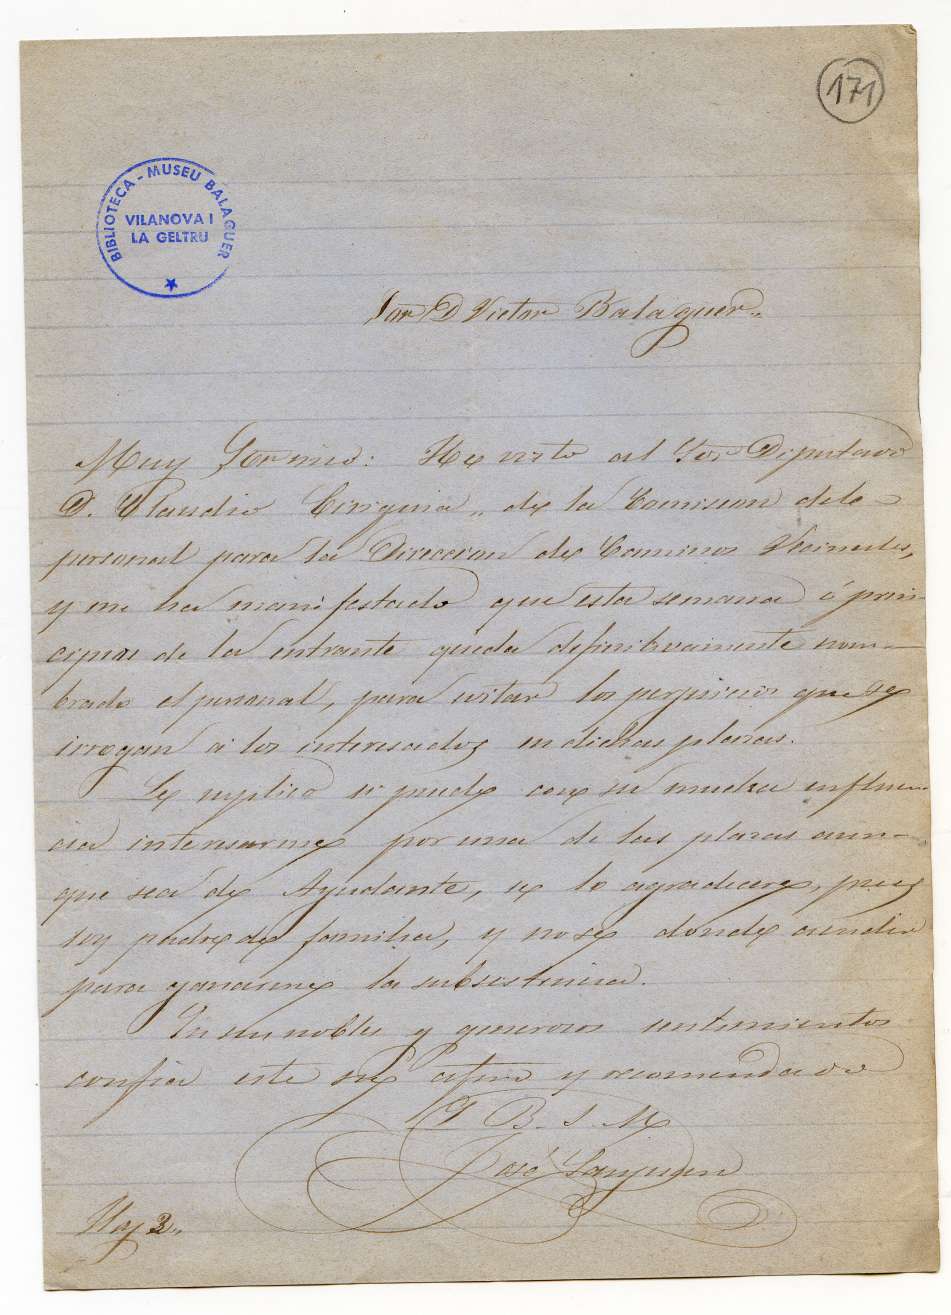 171
BIBLIOTECA - MUSEU BALAGUER
VILANOVA I
LA GELTRU
Sor D Victor Balaguer..
Muy Sor mio: He visto al Sor Diputado
D. Claudio .. de la Comision dele
personal para la Direccion de Caminos Vecinales,
y me ha manifestado que esta semana ó prin
cipios de la entrante queda definitivamente nom-
brado el personal, para evitar los perjuicios que se
irrogan á los interesados en dichas plazas.
Le suplico si puede con su mucha influen
cia interesarme por una de las plazas aun-
que sea de Ayudante, se lo agradecere, pues
soy padre de familia, y no se donde acudir
para ganarme la subsistencia.
En sus nobles y generosos sentimientos
confia este su afmo y recomendado
Q B. S. M
José Sanjuan
Hoy 2..